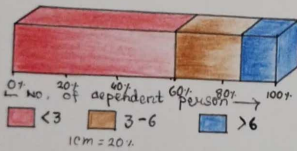 0% 20% 40% 60% 80% 100%
No. of dependent person →
<3 3-6 >6
1cm = 20%